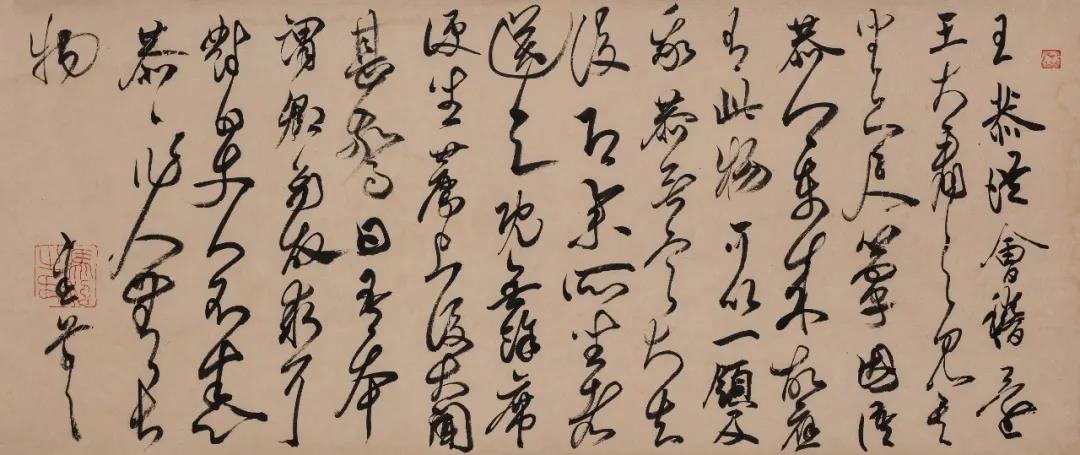 王恭從會稽還
王大看之見其
坐六尺簟因語
恭卿東來故應
有此物可以一領及
我恭無言大去
後即舉所坐者
送之既無餘席
便坐薦上後大聞
甚驚曰吾本
謂卿多故求耳
對曰丈人不悉
恭恭作人無長
物